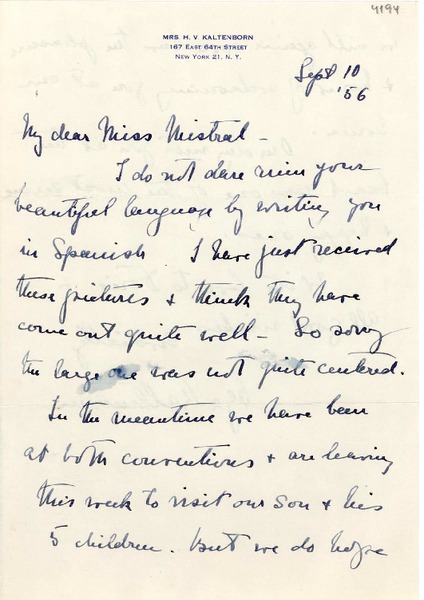 4194
MRS H. V. KALTENBORN
167 EAST 64TH STREET
NEW YORK 21, N. Y.
Sept 10
'56
My dear Miss Mistral -
I do not dare ruin your
beautiful language by writing you
in Spanish. I have just received
these pictures + think they have
come out quite well - So sorry
the large one was not quite centered.
In the meantime we have been
at both conventions + are leaving
this week to visit our son + his
5 children. But we do hope